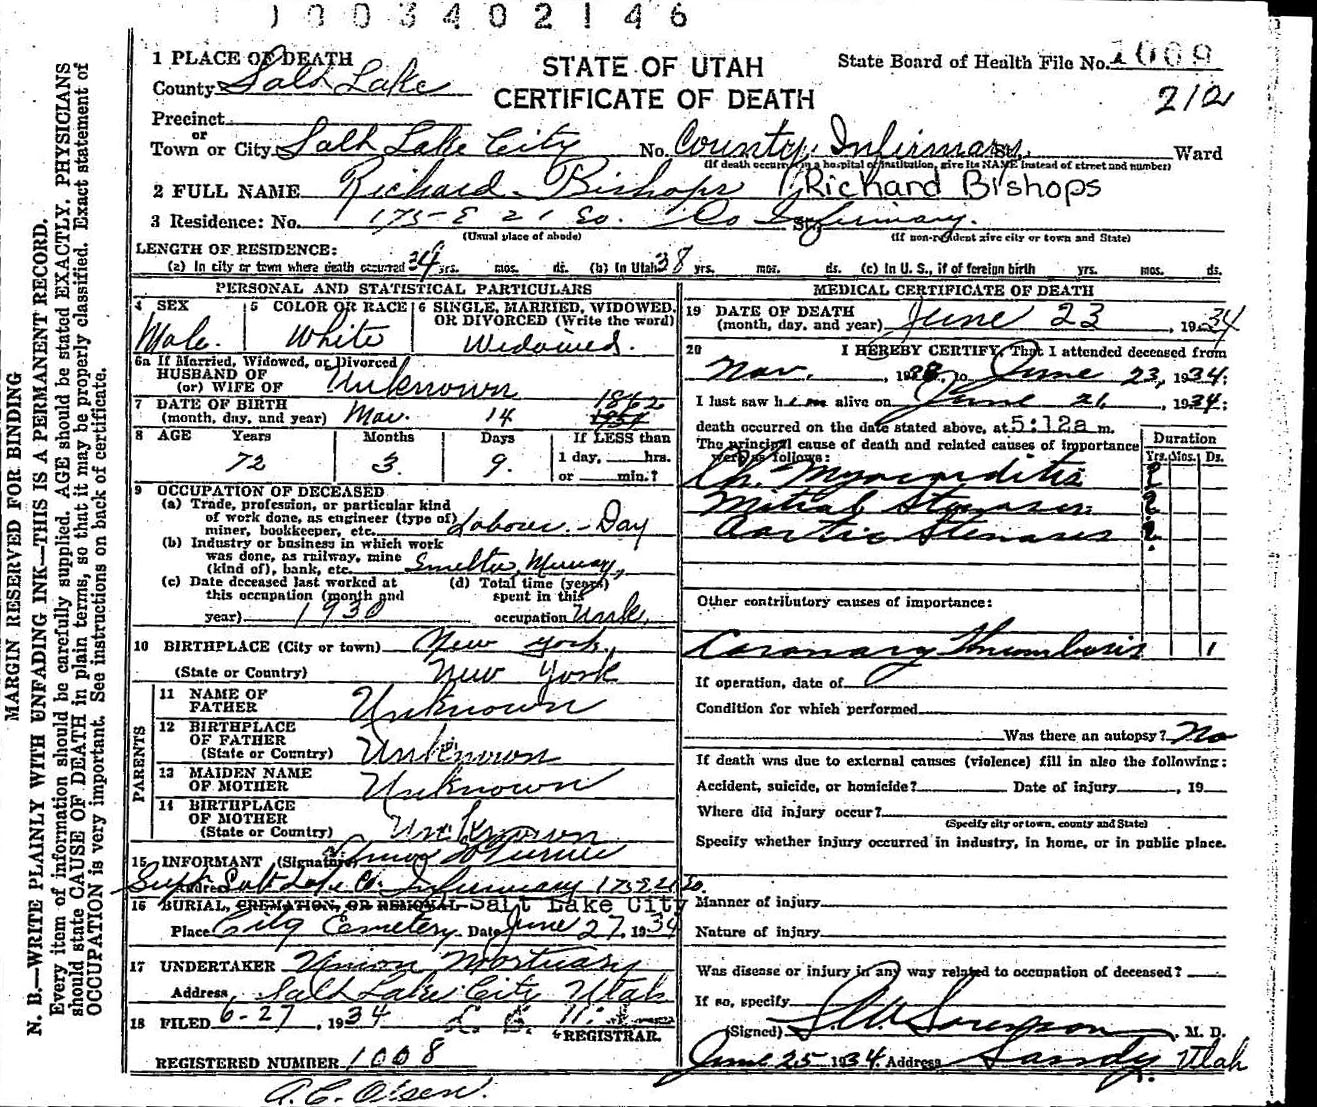 1003402146
1 PLACE OF DEATH
STATE OF UTAH
CERTIFICATE OF DEATH
State Board of Health File No. 1009
212
County Salt Lake
Precinct
or
Town or City Salt Lake City No. County Infirmary St., Ward
(If death occurred in a hospital or institution, give its NAME instead of street and number)
2 FULL NAME Richard Bishops Richard Bishops
3 Residence: No. 175 E 21 So. Co Infirmary. St.
(Usual place of abode) (If non-resident give city or town and State)
LENGTH OF RESIDENCE:
(a) In city or town where death occurred 34 yrs. mos. ds. (b) In Utah 38 yrs. mos. ds. (c) In U. S., if of foreign birth yrs. mos. ds.
PERSONAL AND STATISTICAL PARTICULARS
4 SEX Male.
5 COLOR OR RACE White
6 SINGLE, MARRIED, WIDOWED, OR DIVORCED (Write the word) Widowed.
6a If Married, Widowed, or Divorced
HUSBAND OF
(or) WIFE OF Unknown
7 DATE OF BIRTH
(month, day, and year) Mar. 14 1862
8 AGE Years Months Days If LESS than
72 3. 9. 1 day, hrs.
or min.?
9 OCCUPATION OF DECEASED
(a) Trade, profession, or particular kind
of work done, as engineer (type of)
miner, bookkeeper, etc. Laborer - Day
(b) Industry or business in which work
was done, as railway, mine
(kind of), bank, etc. Smelter, Murray,
(c) Date deceased last worked at
this occupation (month and
year) 1930
(d) Total time (years)
spent in this
occupation Unk.
10 BIRTHPLACE (City or town) New York,
(State or Country) New York
PARENTS
11 NAME OF
FATHER Unknown
12 BIRTHPLACE
OF FATHER
(State or Country) Unknown
13 MAIDEN NAME
OF MOTHER Unknown
14 BIRTHPLACE
OF MOTHER
(State or Country) Unknown
15 INFORMANT (Signature)
Address Supt. Salt Lake Co. Infirmary 175 E 21 So.
16 BURIAL, CREMATION, OR REMOVAL Salt Lake City
Place City Cemetery. Date June 27, 1934
17 UNDERTAKER Union Mortuary
Address, Salt Lake City Utah
18 FILED 6-27, 1934
REGISTRAR.
REGISTERED NUMBER 1008
A.C. Olsen.
MEDICAL CERTIFICATE OF DEATH
19 DATE OF DEATH
(month, day, and year) June 23, 1934
20 I HEREBY CERTIFY, That I attended deceased from
Nov. , 1928, to June 23, 1934;
I last saw him alive on June 21, 1934;
death occurred on the date stated above, at 5:12a m.
The principal cause of death and related causes of importance
were as follows:
Duration
Yrs. Mos. Ds.
Ch. Myocarditis ?
Mitral Stenosis ?
Aortic Stenosis ?
Other contributory causes of importance:
Coronary Thrombosis 1
If operation, date of
Condition for which performed
Was there an autopsy? No
If death was due to external causes (violence) fill in also the following:
Accident, suicide, or homicide? Date of injury , 19
Where did injury occur?
(Specify city or town, county and State)
Specify whether injury occurred in industry, in home, or in public place.
Manner of injury
Nature of injury
Was disease or injury in any way related to occupation of deceased?
If so, specify
(Signed) Sorenson, M. D.
June 25 1934. Address Sandy, Utah
MARGIN RESERVED FOR BINDING
N. B.—WRITE PLAINLY WITH UNFADING INK—THIS IS A PERMANENT RECORD.
Every item of information should be carefully supplied. AGE should be stated EXACTLY. PHYSICIANS
should state CAUSE OF DEATH in plain terms, so that it may be properly classified. Exact statement of
OCCUPATION is very important. See instructions on back of certificate.